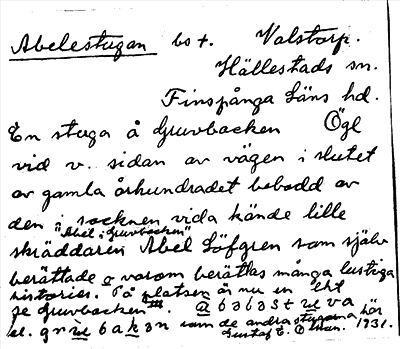 Abelestugan bs t. Valstorp.
Hällestads sn.
Finspånga Läns hd.
En stuga å Gruvbacken Ögl
vid v. sidan av vägen i slutet
av gamla århundradet bebodd av
den i socknen vida kände lille
"Abel i Gruvbacken"
skräddaren Abel Löfgren som själv
berättade o varom berättas många lustiga
historier. På platsen är nu en lht
se Gruvbacken
el. som de andra stugorna här
Gustaf E. 1931.